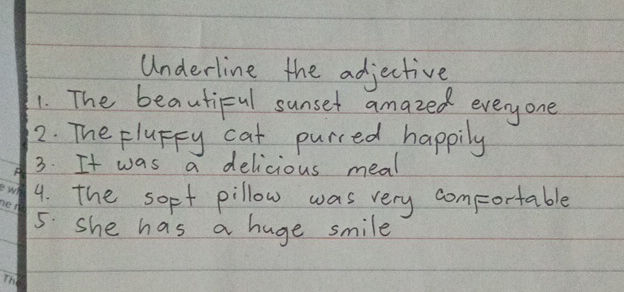 Underline the adjective
1. The beautiful sunset amazed everyone
2. The fluffy cat purred happily
3. It was a delicious meal
4. The soft pillow was very comfortable
5. She has a huge smile